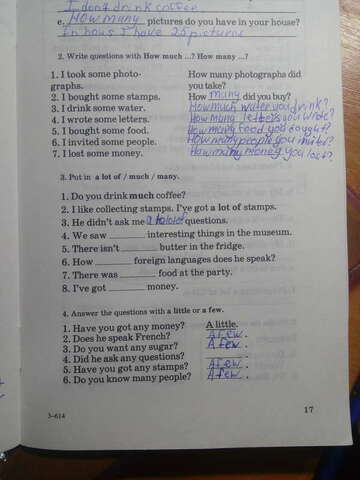 I don't drink coffee
e. How many pictures do you have in your house?
In hous I have 20 pictures
2. Write questions with How much ...? How many ...?
1. I took some photo- How many photographs did
graphs. you take?
2. I bought some stamps. How many did you buy?
3. I drink some water. How much water you drink?
4. I wrote some letters. How many letters you wrote?
5. I bought some food. How many food you bought?
6. I invited some people. How many people you invited?
7. I lost some money. How many money you lost?
3. Put in a lot of / much / many.
1. Do you drink much coffee?
2. I like collecting stamps. I've got a lot of stamps.
3. He didn't ask me a lot of questions.
4. We saw ______ interesting things in the museum.
5. There isn't ______ butter in the fridge.
6. How ______ foreign languages does he speak?
7. There was ______ food at the party.
8. I've got ______ money.
4. Answer the questions with a little or a few.
1. Have you got any money? A little.
2. Does he speak French? A few.
3. Do you want any sugar? A few.
4. Did he ask any questions? ______.
5. Have you got any stamps? A few.
6. Do you know many people? A few.
3-614
17